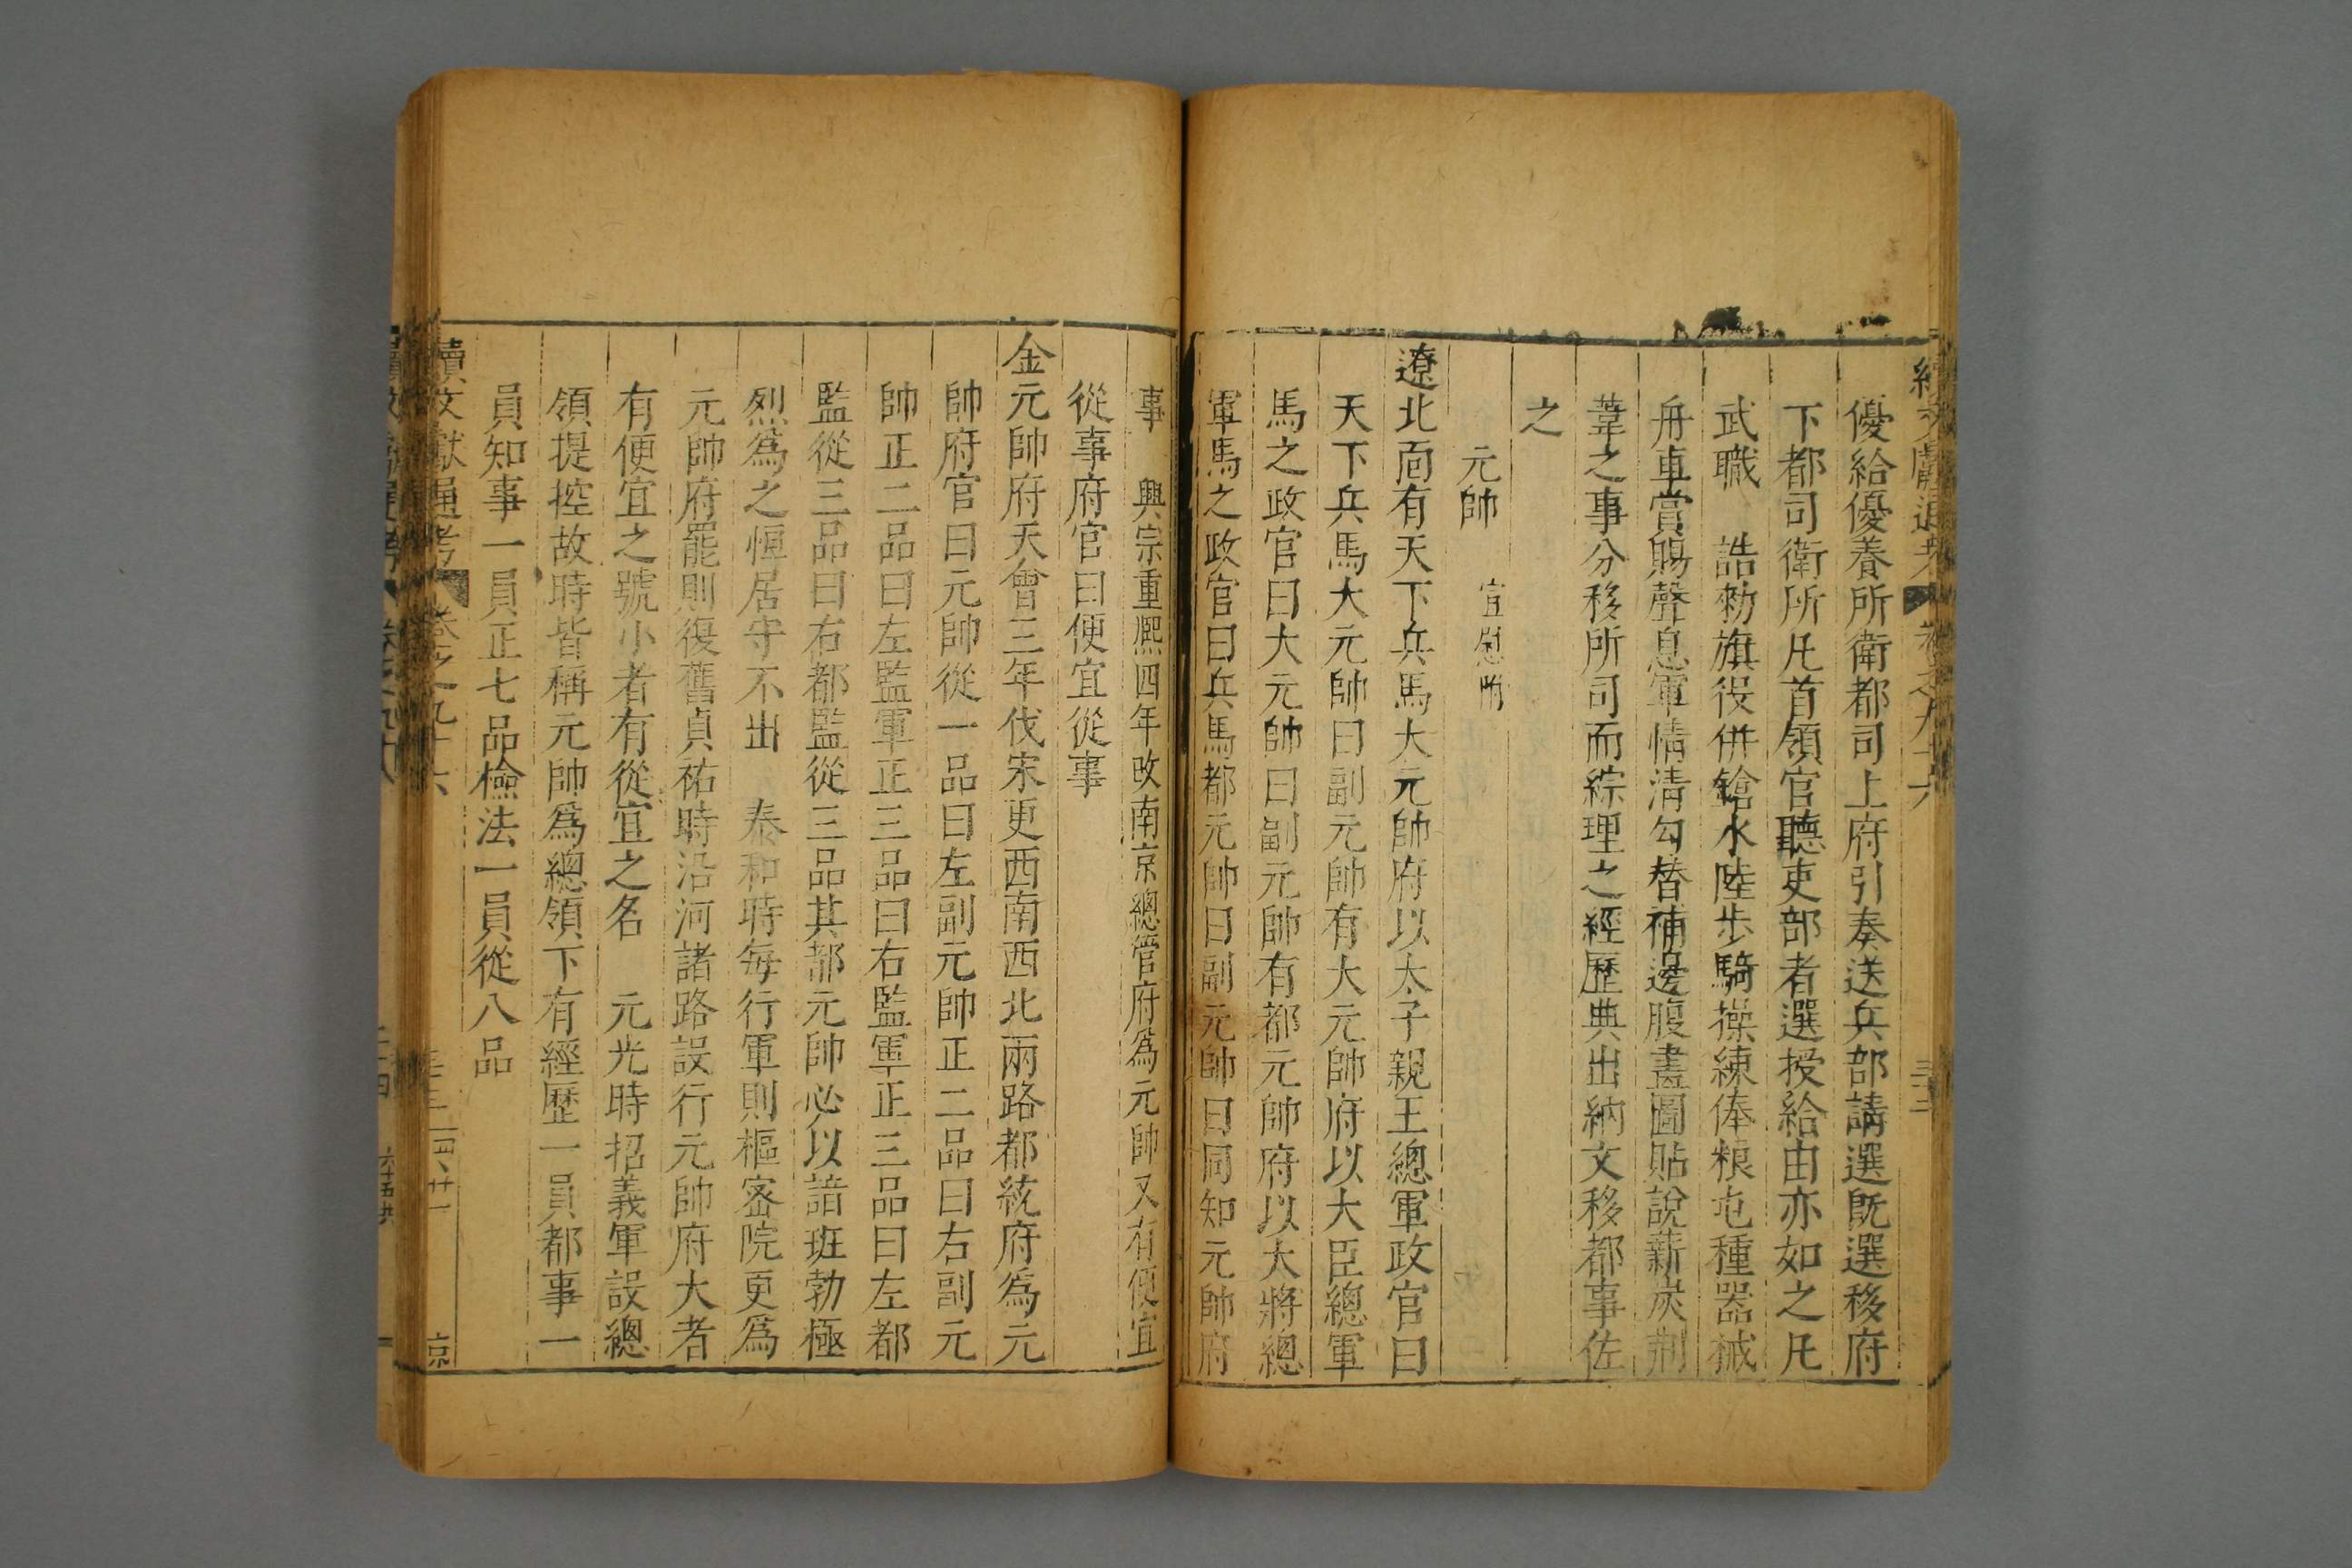 優給優養所衛都司上府引奏送兵部請選旣選移府
下都司衛所凡首領官聽吏部者選授給由亦如之凡
武職 誥勑旗役併鎗水陸步騎操練俸粮屯種器械
舟車賞賜聲息軍情清勾替補邊腹畫圖貼說薪炭荆
葦之事分移所司而綜理之經歷典出納文移都事佐
之
元帥 宣慰附
遼北面有天下兵馬大元帥府以太子親王總軍政官曰
天下兵馬大元帥曰副元帥有大元帥府以大臣總軍
馬之政官曰大元帥曰副元帥有都元帥府以大將總
軍馬之政官曰兵馬都元帥曰副元帥曰同知元帥府
事 興宗重熈四年改南京總管府爲元帥又有便宜
從事府官曰便宜從事
金元帥府天會三年伐宋更西南西北兩路都統府爲元
帥府官曰元帥從一品曰左副元帥正二品曰右副元
帥正二品曰左監軍正三品曰右監軍正三品曰左都
監從三品曰右都監從三品其都元帥必以諳班勃極
烈爲之恒居守不出 泰和時每行軍則樞密院更爲
元帥府罷則復舊貞祐時沿河諸路設行元帥府大者
有便宜之號小者有從宜之名 元光時招義軍設總
領提控故時皆稱元帥爲總領下有經歷一員都事一
員知事一員正七品檢法一員從八品
續文獻通考 卷之九十六